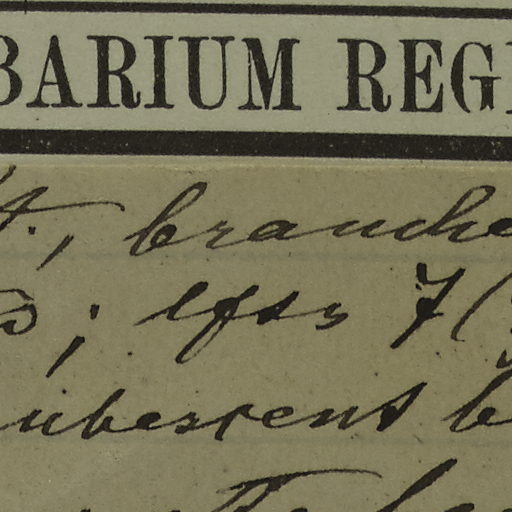 BARIUM REGI
ft., branche
; lfts 7 (
ubescent b